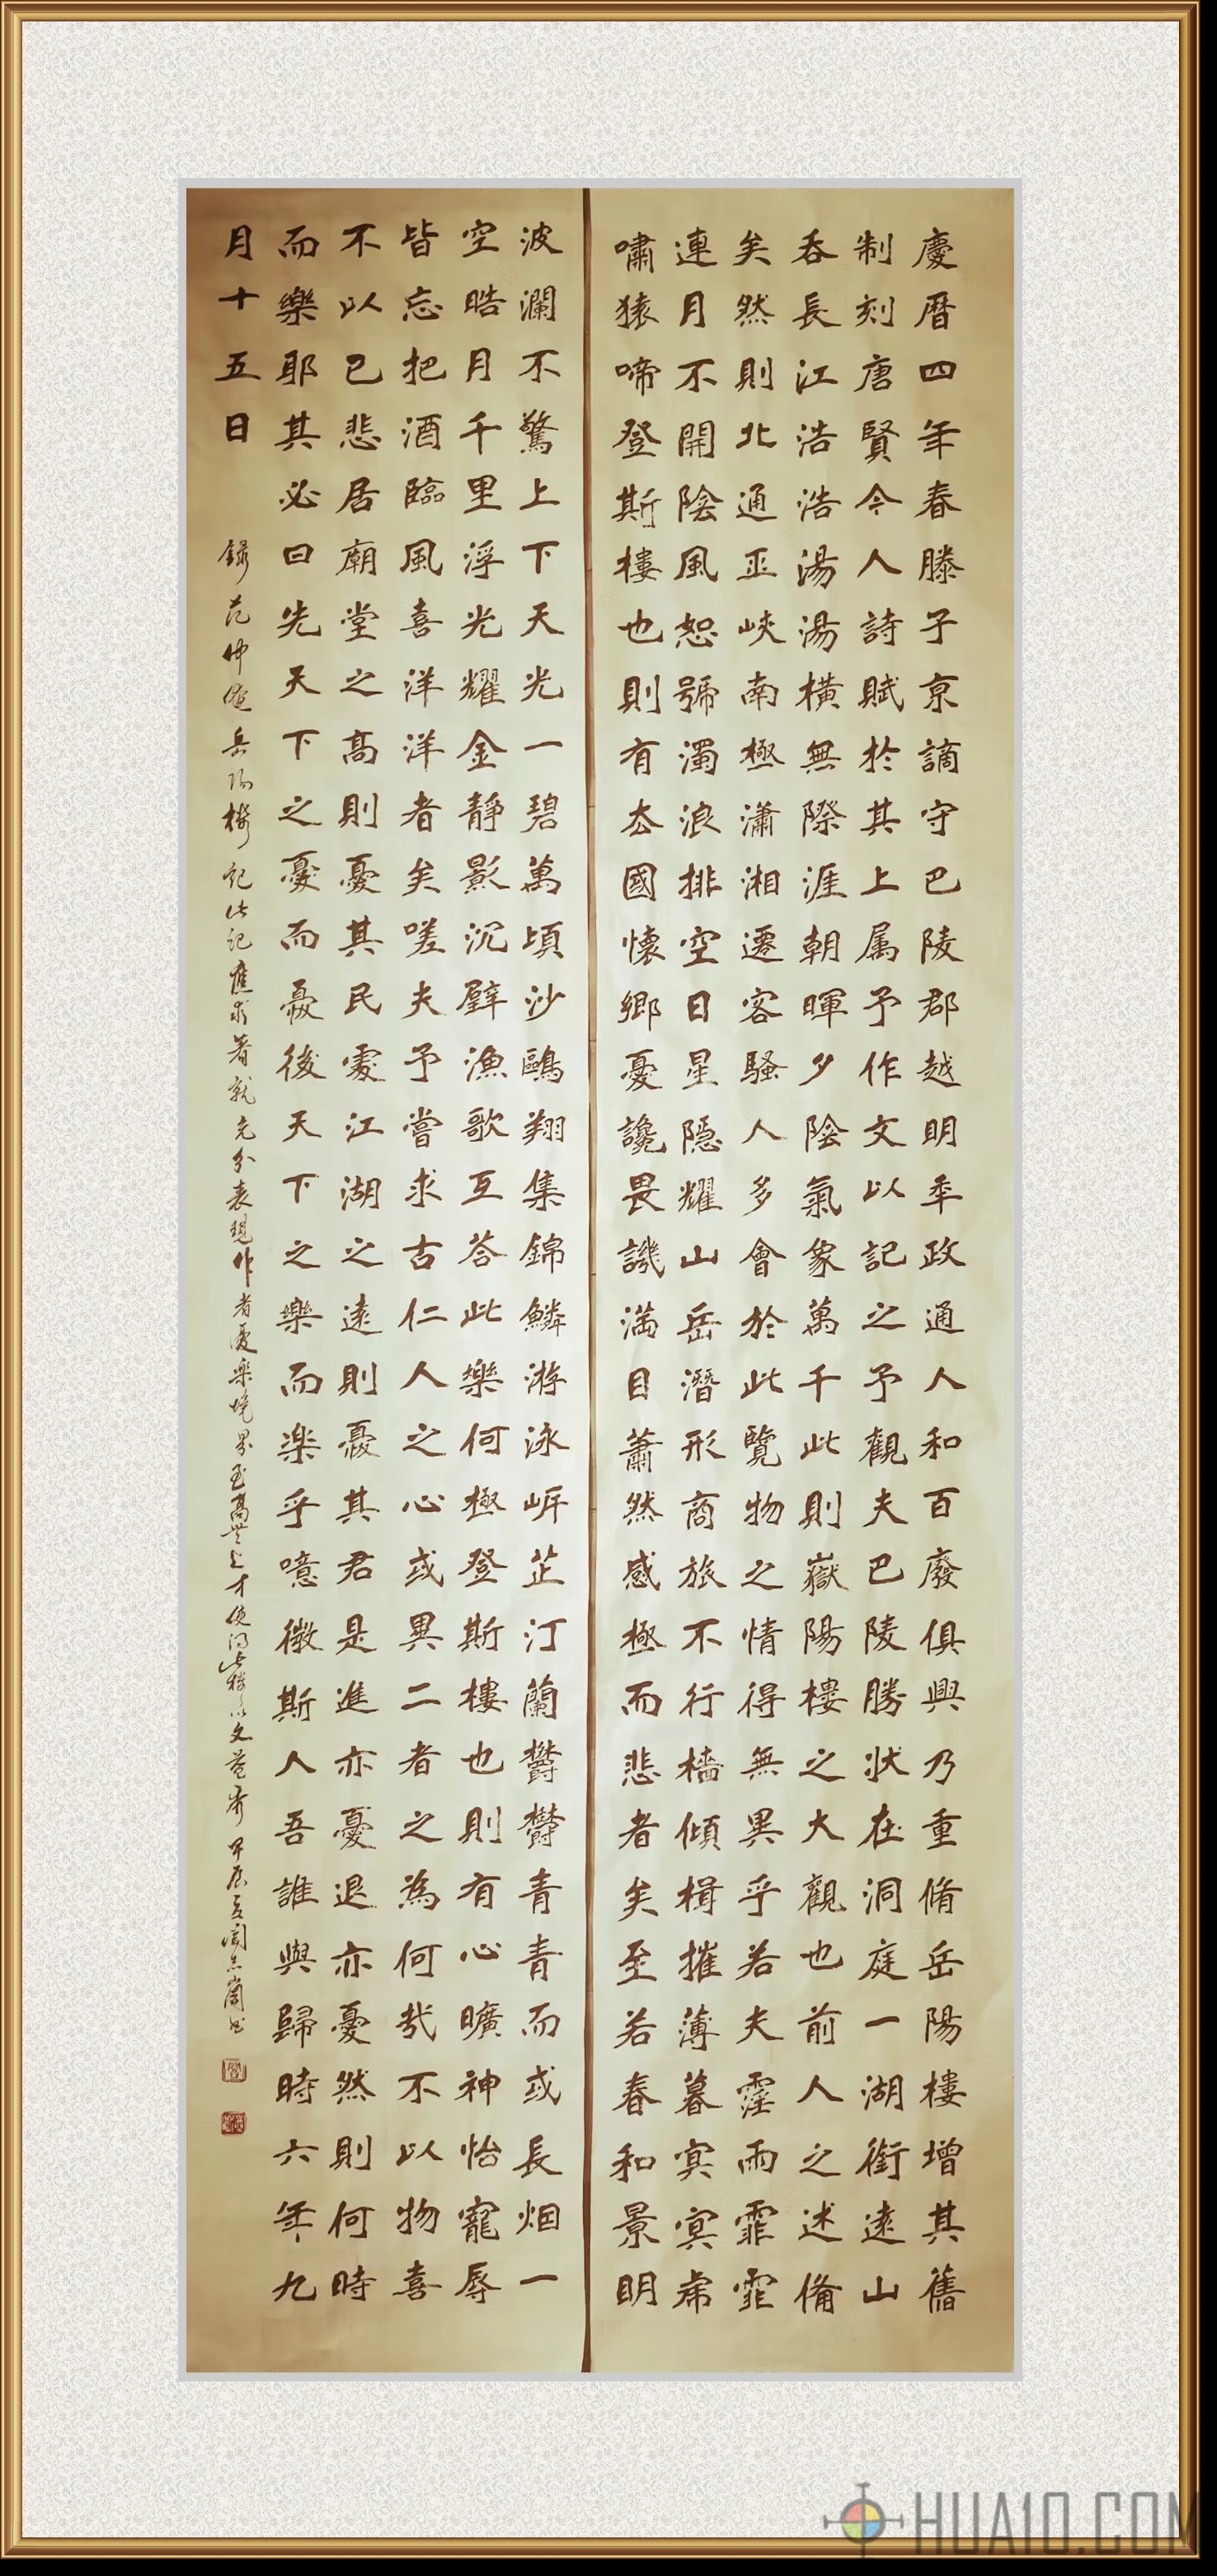 慶暦四年春滕子京謫守巴陵郡越明秊政通人和百廢俱興乃重脩岳陽樓增其舊
制刻唐賢今人詩賦於其上属予作文以記之予觀夫巴陵勝状在洞庭一湖銜遠山
吞長江浩浩湯湯橫無際涯朝暉夕陰氣象萬千此則嶽陽樓之大觀也前人之述備
矣然則北通巫峽南極瀟湘遷客騷人多會於此覽物之情得無異乎若夫霪雨霏霏
連月不開陰風恕號濁浪排空日星隱耀山岳潛形商旅不行檣傾楫摧薄暮冥冥虎
嘯猿啼登斯樓也則有去國懷鄉憂讒畏譏满目蕭然感極而悲者矣至若春和景明
波瀾不驚上下天光一碧萬頃沙鷗翔集錦鱗游泳岸芷汀蘭欝欝青青而或長烟一
空皓月千里浮光耀金静影沉璧漁歌互答此樂何極登斯樓也則有心曠神怡寵辱
皆忘把酒臨風喜洋洋者矣嗟夫予嘗求古仁人之心或異二者之為何哉不以物喜
不以己悲居廟堂之高則憂其民處江湖之遠則憂其君是進亦憂退亦憂然則何時
而樂耶其必曰先天下之憂而憂後天下之樂而樂乎噫微斯人吾誰與歸時六年九
月十五日
錄范仲淹岳陽樓記此記應求著就充分表現作者憂樂境界至高無上才使得此樓以文益秀甲辰夏
HUA10.COM